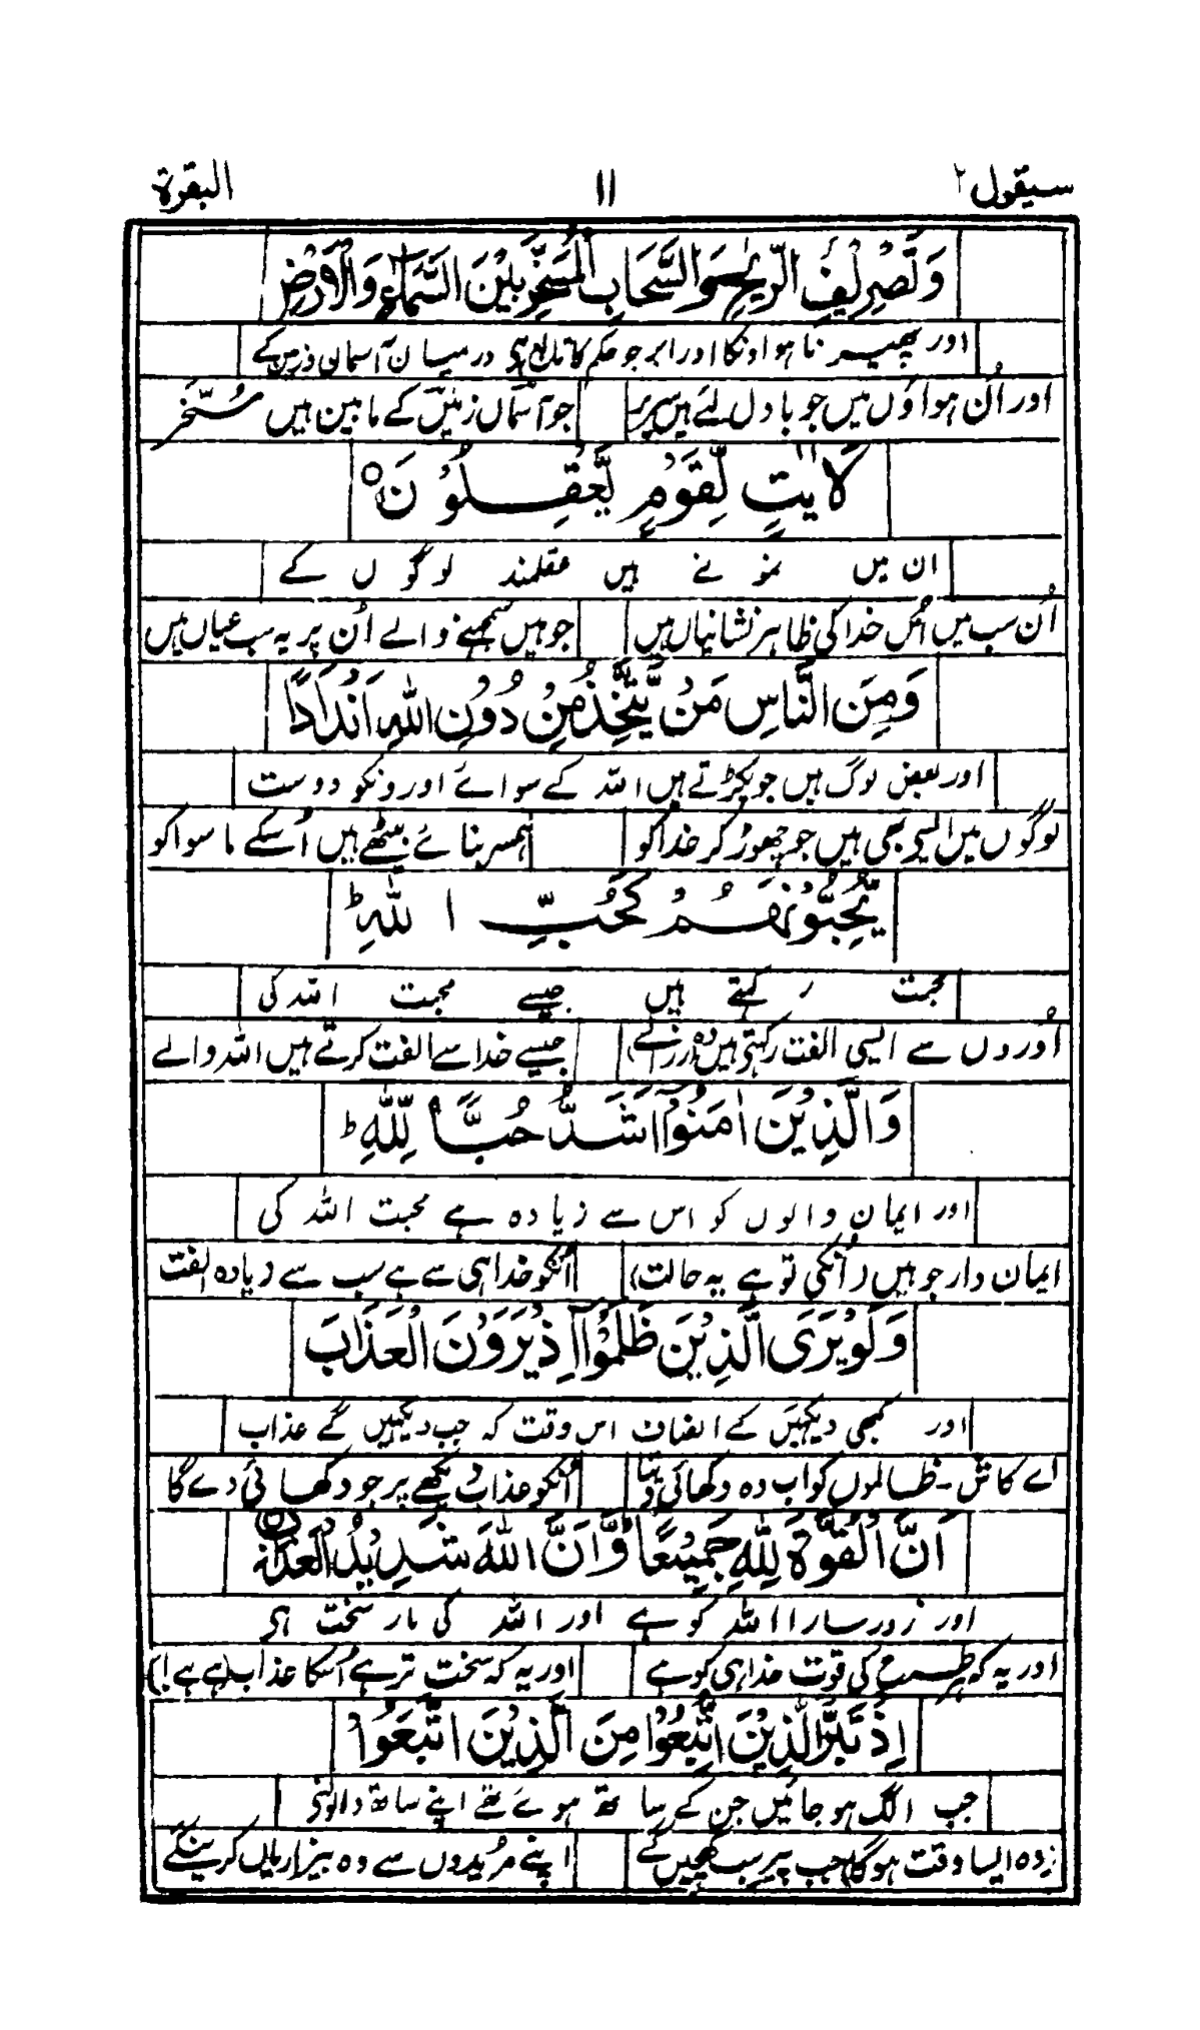 سیقول ۲ ۱۱ البقرة
وَتَصْرِيْفِ الرِّيٰحِ وَالسَّحَابِ الْمُسَخَّرِ بَيْنَ السَّمَآءِ وَالْاَرْضِ
اور پھیرنا ہواونکا اور ابر جو حکم کا تابع ہی درمیان آسمان و زمین کے
اور اُن ہواؤں میں جو بادل لئے ہیں سر پر جو آسمان زمیں کے مابین ہیں مُسخّر
لَاٰيٰتٍ لِّقَوْمٍ يَّعْقِلُوْنَ
ان میں نمونے ہیں عقلمند لوگوں کے
اُن سب میں اُس خدا کی ظاہر نشانیاں ہیں جو ہیں سمجھنے والے اُن پر یہ سب عیاں ہیں
وَمِنَ النَّاسِ مَنْ يَّتَّخِذُ مِنْ دُوْنِ اللّٰهِ اَنْدَادًا
اور بعض لوگ ہیں جو پکڑتے ہیں اللہ کے سوائے اورونکو دوست
لوگوں میں ایسی بھی ہیں جو چھوڑ کر خدا کو ہمسر بنائے بیٹھے ہیں اُسکے ماسوا کو
يُّحِبُّوْنَهُمْ كَحُبِّ اللّٰهِ ط
محبت رکھتے ہیں جیسے محبت اللہ کی
اُوروں سے ایسی الفت رکھتی ہیں وہ جیسے خدا سے الفت کرتے ہیں اللہ والے
وَالَّذِيْنَ اٰمَنُوْٓا اَشَدُّ حُبًّا لِّلّٰهِ ط
اور ایمان والوں کو اس سے زیادہ ہے محبت اللہ کی
ایمان دار جو ہیں (اُنکی تو ہے یہ حالت) اُنکو خدا ہی سے ہے سب سے زیادہ الفت
وَلَوْ يَرَى الَّذِيْنَ ظَلَمُوْٓا اِذْ يَرَوْنَ الْعَذَابَ
اور کبھی دیکھیں بے انصاف اس وقت کہ جب دیکھیں گے عذاب
اے کاش۔ ظالموں کو اب وہ دکھائی دیتا اُنکو عذاب دیکھے پر جو دکھائی دے گا
اَنَّ الْقُوَّةَ لِلّٰهِ جَمِيْعًا وَّاَنَّ اللّٰهَ شَدِيْدُ الْعَذَابِ
اور زور سارا اللہ کو ہے اور اللہ کی مار سخت ہی
اور یہ کہ ہر طرح کی قوت خدا ہی کو ہے اور یہ کہ سخت تر ہے اُسکا عذاب (ہے ہے!)
اِذْ تَبَرَّاَ الَّذِيْنَ اتُّبِعُوْا مِنَ الَّذِيْنَ اتَّبَعُوْا
جب الگ ہو جائیں جن کے ساتھ ہوئے تھے اپنے ساتھ والونسے
(وہ ایسا وقت ہوگا) جب پیر سب کے اپنے مُریدوں سے وہ بیزاریاں کرینگے